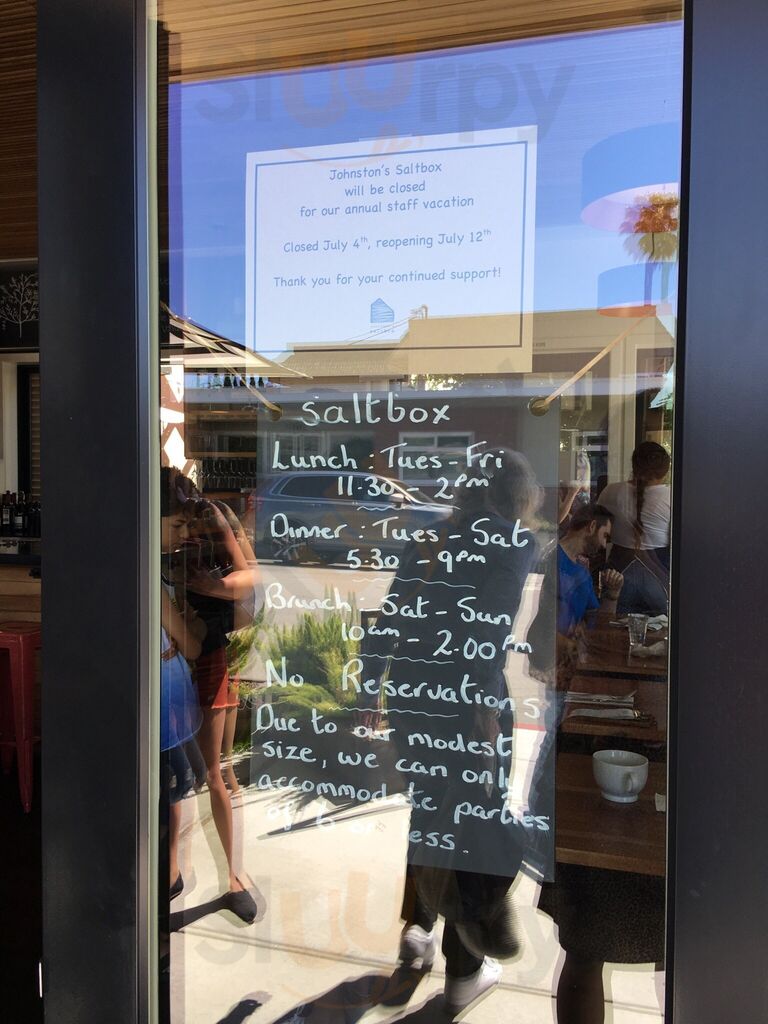 sluurpy
Johnston's Saltbox
will be closed
for our annual staff vacation
Closed July 4th, reopening July 12th
Thank you for your continued support!
saltbox
Lunch : Tues - Fri
11.30 - 2pm
Dinner : Tues - Sat
5.30 - 9pm
Brunch : Sat - Sun
10am - 2.00pm
No Reservations
Due to our modest
size, we can only
accommodate parties
of 6 or less.
sluurpy